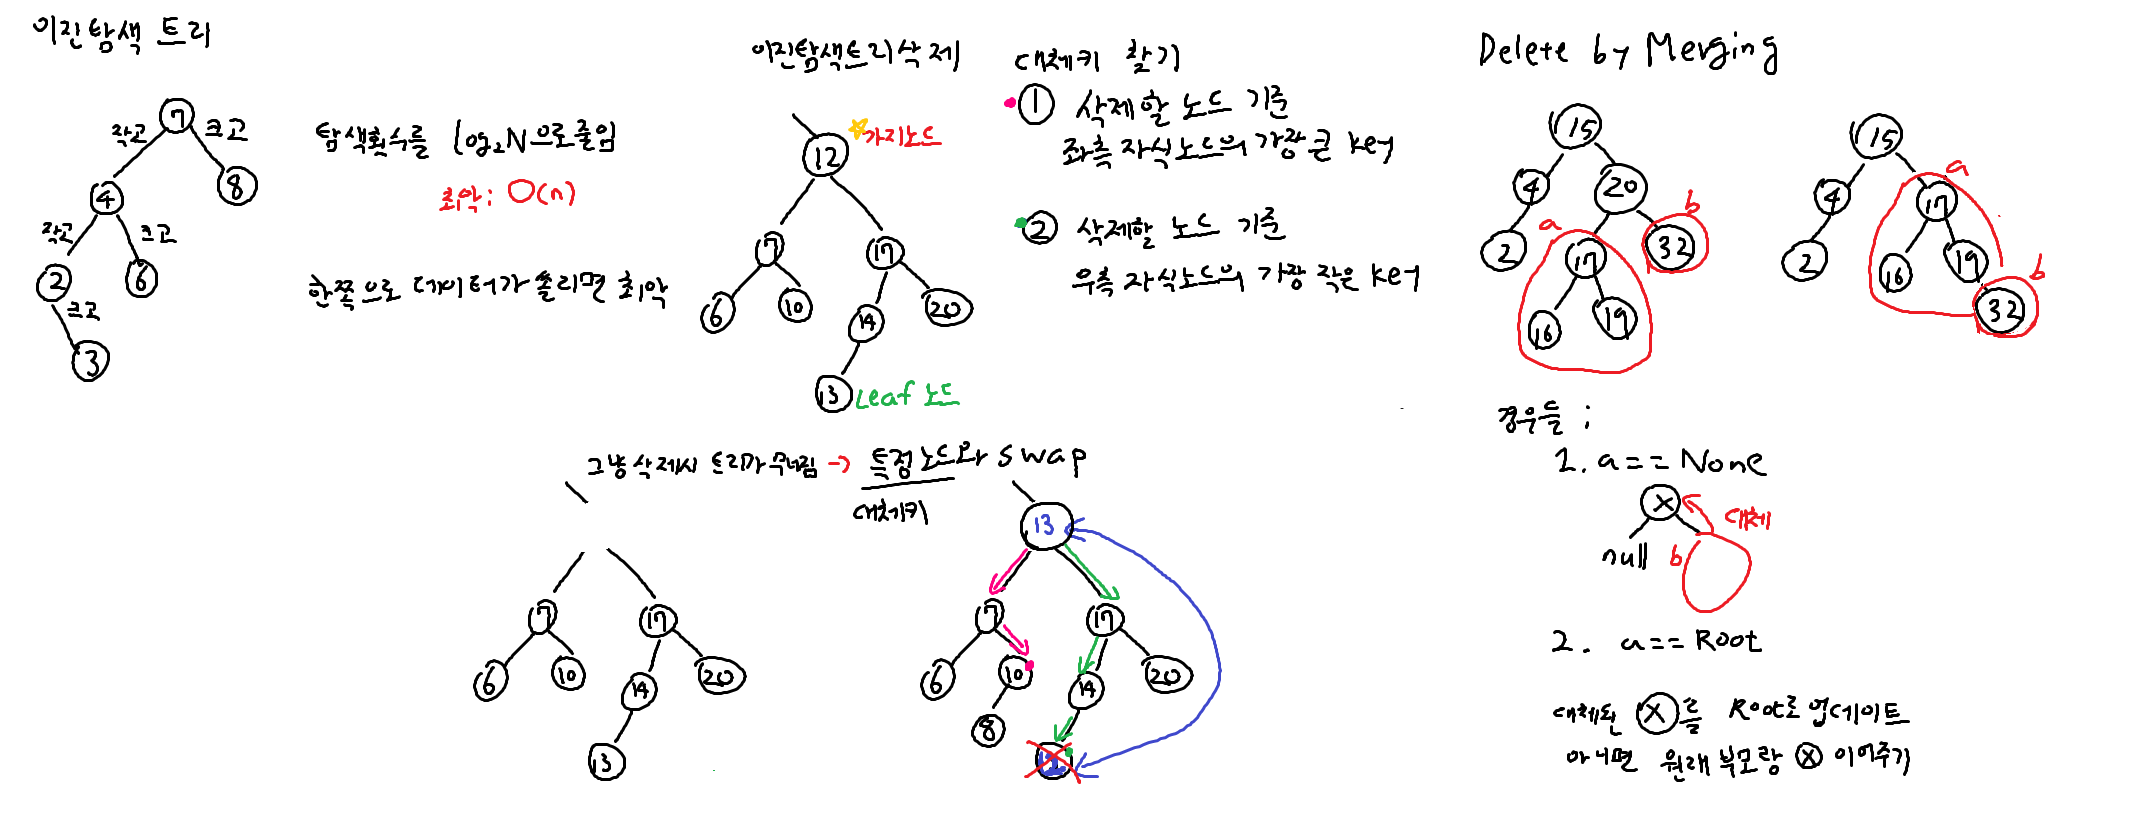 이진탐색 트리
7
작고
크고
4
8
작고
크고
2
6
크고
3
탐색횟수를 log₂N으로줄임
최악: O(n)
한쪽으로 데이터가 쏠리면 최악
이진탐색트리삭제
12
가지노드
7
17
6
10
14
20
13
Leaf 노드
대체키 찾기
1 삭제할 노드 기준
좌측 자식노드의 가장 큰 key
2 삭제할 노드 기준
우측 자식노드의 가장 작은 key
그냥 삭제시 트리가 무너짐 → 특정노드와 swap
대체키
7
17
6
10
14
20
13
13
7
17
6
10
14
20
8
Delete by Merging
15
4
20
b
a
2
17
32
16
19
15
a
4
17
2
16
19
b
32
경우들 ;
1. a == None
X
대체
null
b
2. a == Root
대체된 X를 Root로 업데이트
아니면 원래부모랑 X 이어주기